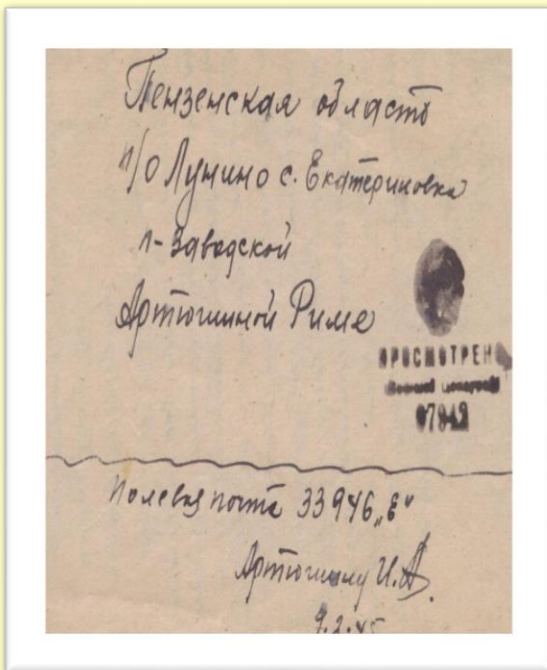 Пензенская область
п/о Лунино с. Екатериновка
п-Заводской
Артюшиной Риме
ПРОСМОТРЕНО
Военной Цензурой
07942
Полевая почта 33946 „Е“
Артюшину И.А.
9.2.45